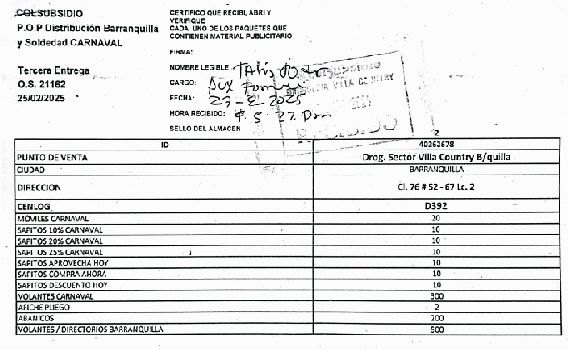 COLSUBSIDIO
P.O.P Distribución Barranquilla
y Soldedad CARNAVAL
Tercera Entrega
O.S. 21162
25/02/2025
CERTIFICO QUE RECIBI, ABRI Y
VERIFIQUE
CADA UNO DE LOS PAQUETES QUE
CONTIENEN MATERIAL PUBLICITARIO
FIRMA:
NOMBRE LEGIBLE
CARGO:
FECHA: 2025
HORA RECIBIDO:
SELLO DEL ALMACEN
VILLA COUNTRY
2
ID 40262678
PUNTO DE VENTA Drog. Sector Villa Country B/quilla
CIUDAD BARRANQUILLA
DIRECCION Cl. 76 # 52 - 67 Lc. 2
CENLOG D392
MOVILES CARNAVAL 20
SAPITOS 10% CARNAVAL 10
SAPITOS 20% CARNAVAL 10
SAPITOS 25% CARNAVAL 10
SAPITOS APROVECHA HOY 10
SAPITOS COMPRA AHORA 10
SAPITOS DESCUENTO HOY 10
VOLANTES CARNAVAL 300
AFICHE PLIEGO 2
ABANICOS 200
VOLANTES / DIRECTORIOS BARRANQUILLA 500